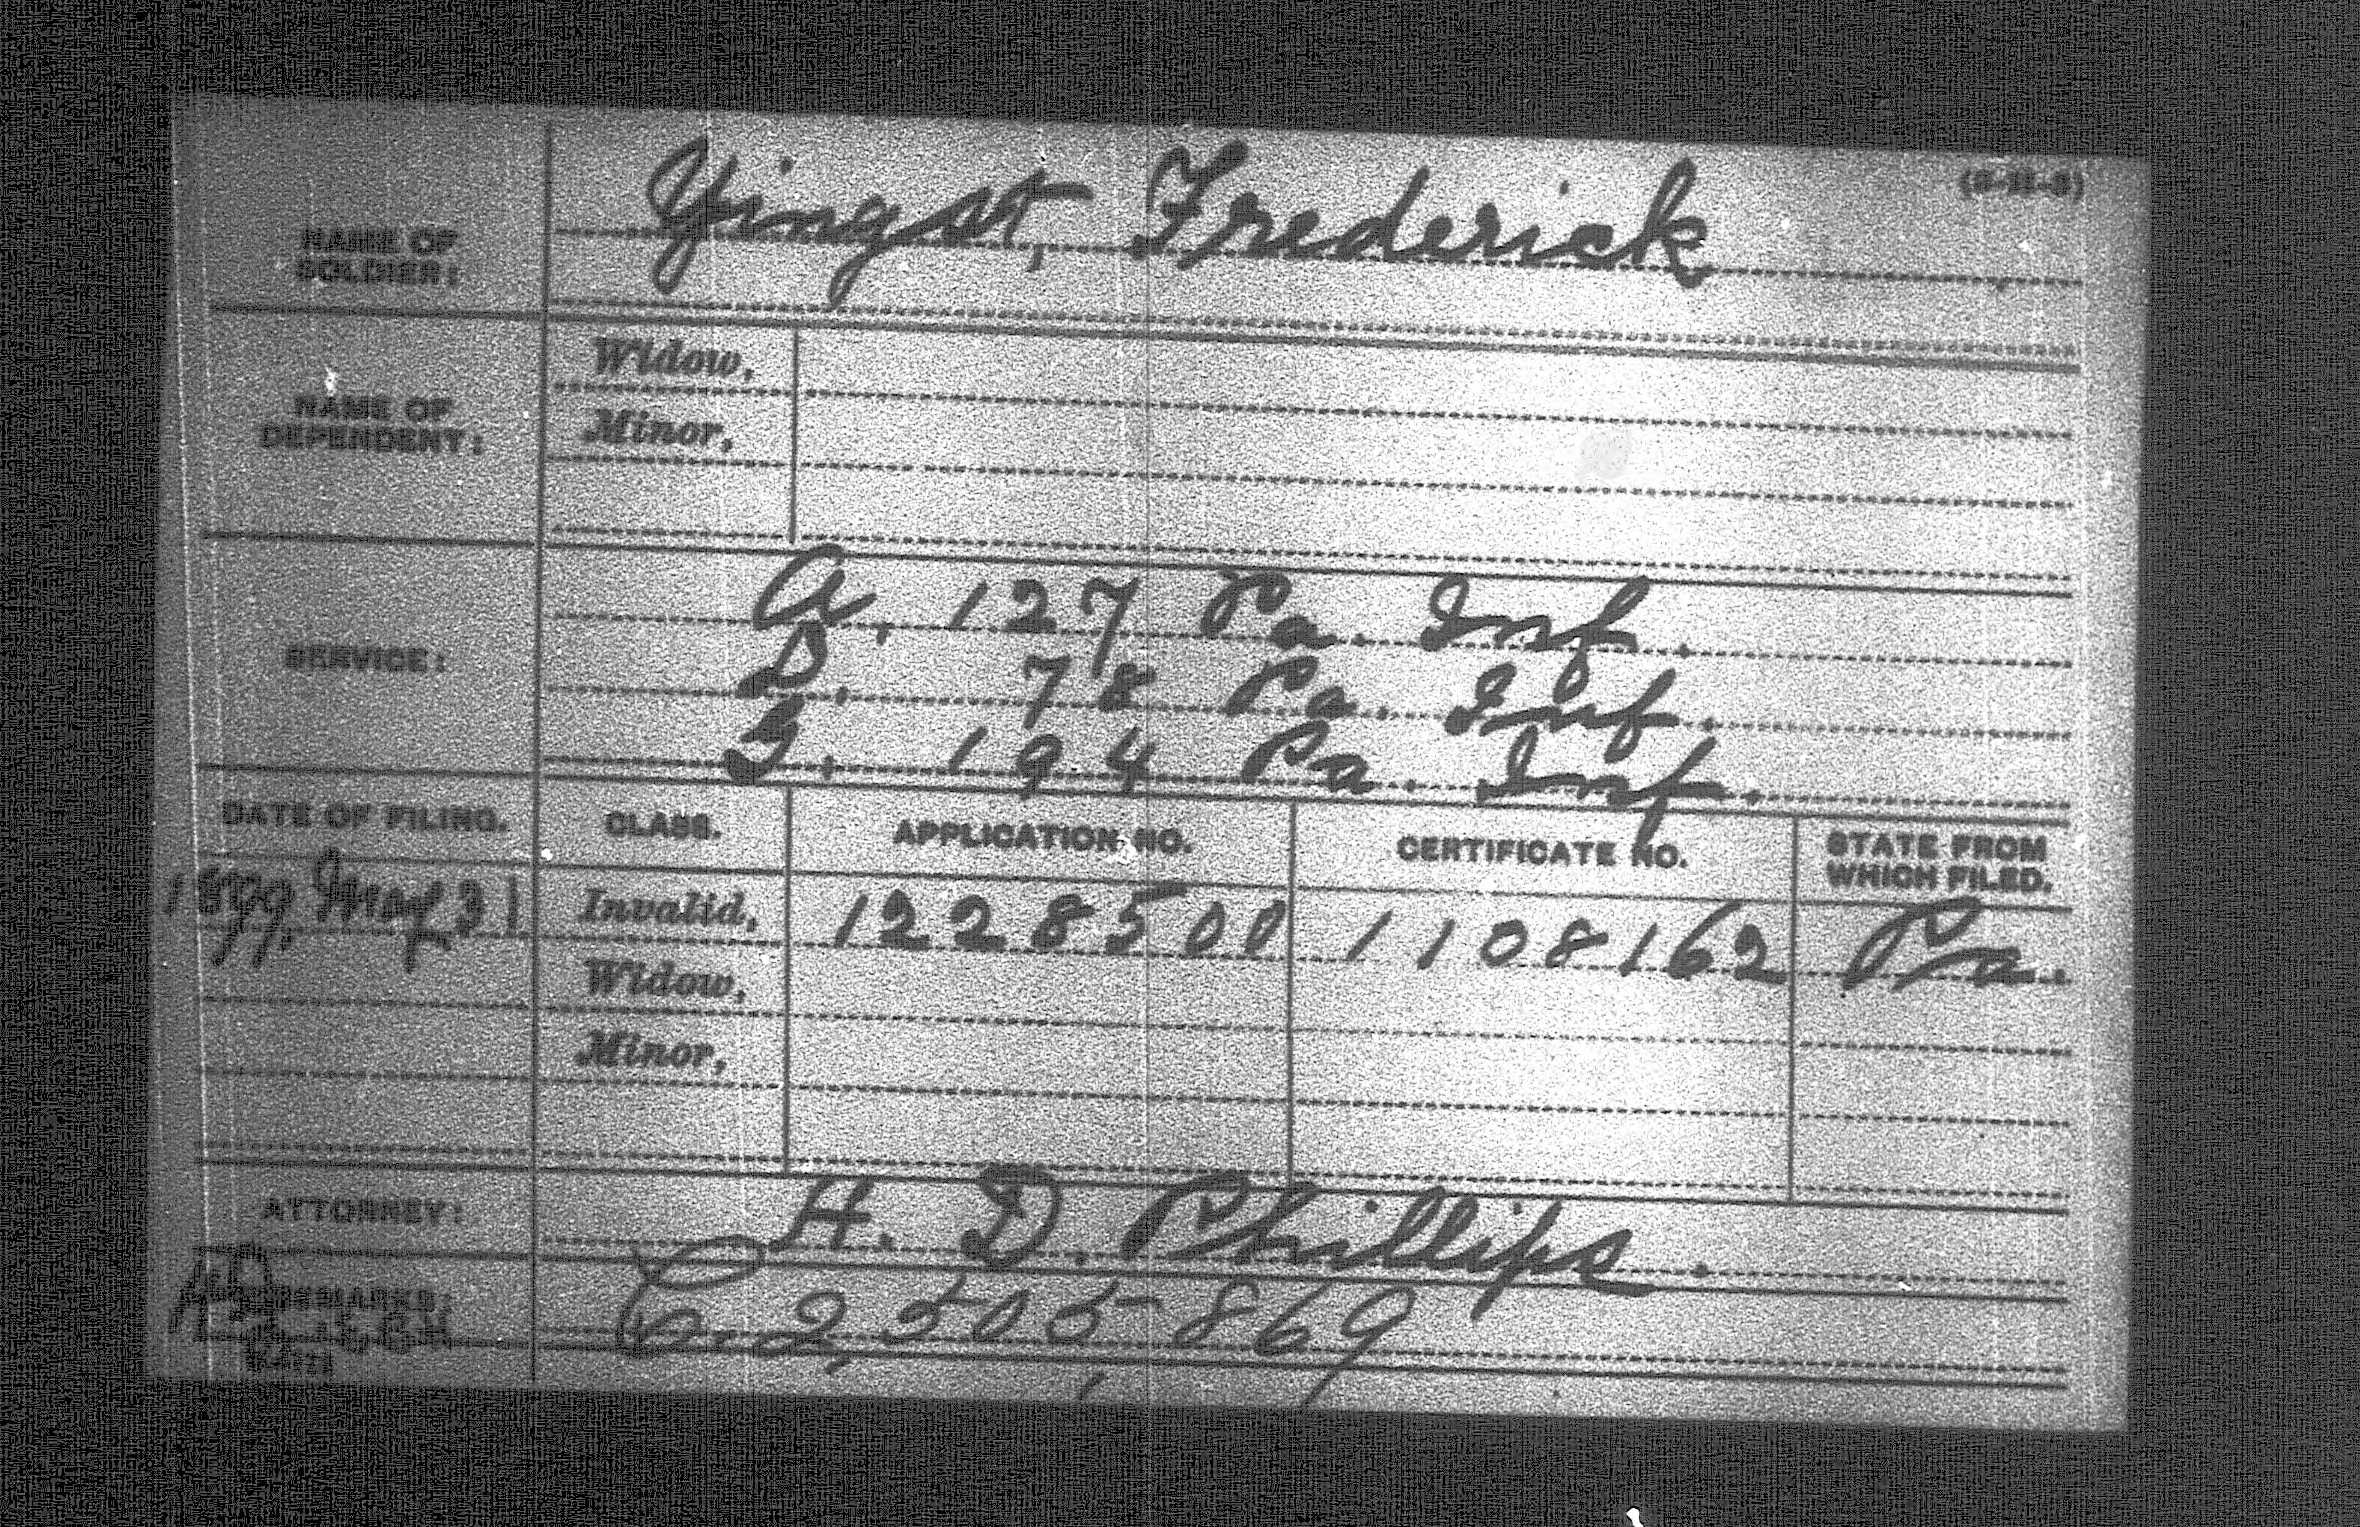 Yingst, Frederick
NAME OF
SOLDIER:
Widow,
NAME OF
DEPENDENT:
Minor,
A. 127 Pa. Inf.
SERVICE:
D. 78 Pa. Inf.
I. 194 Pa. Inf.
DATE OF FILING. CLASS. APPLICATION NO. CERTIFICATE NO. STATE FROM
WHICH FILED.
1899 May 31 Invalid, 1228500 1108162 Pa.
Widow,
Minor,
ATTORNEY: H. D. Phillips.
REMARKS: C. 2,505,869